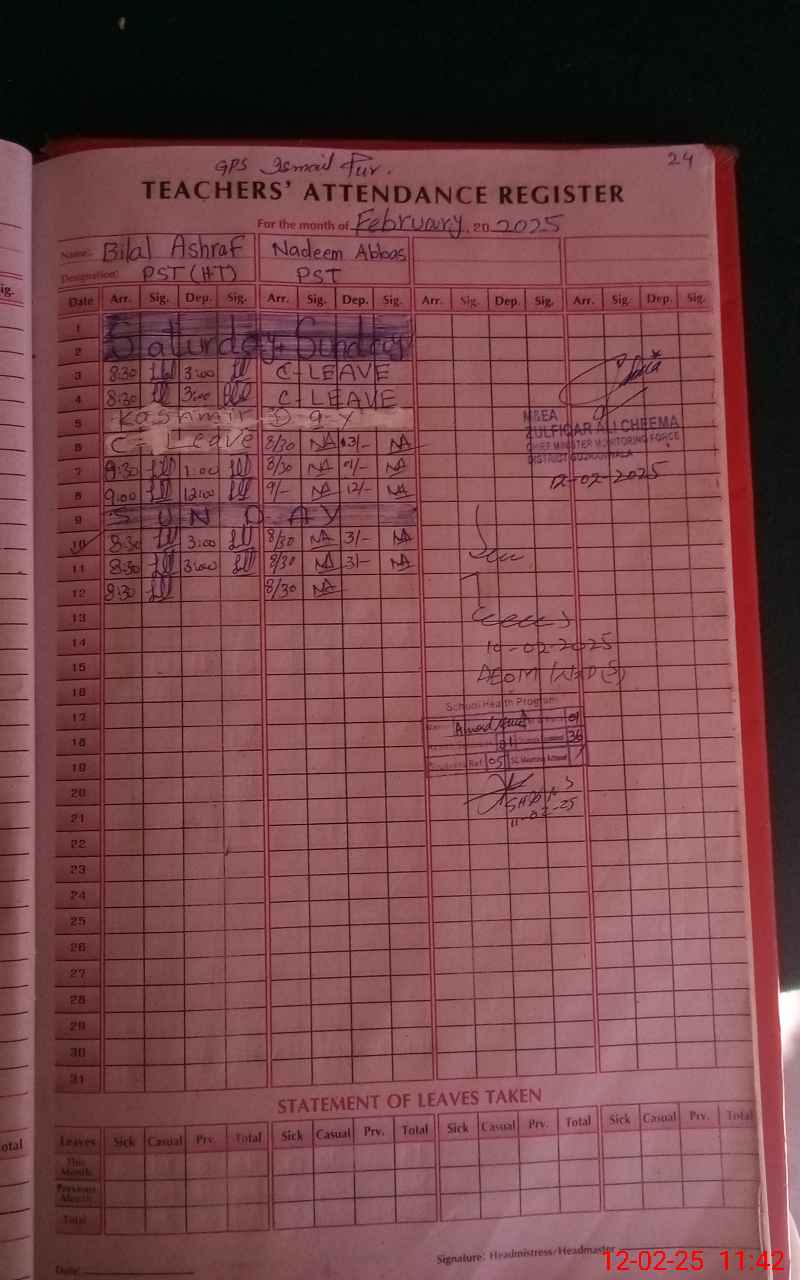 24
GPS Ismail Pur.
TEACHERS' ATTENDANCE REGISTER
For the month of February, 20 2025
Name: Bilal Ashraf Nadeem Abbas
Designation: PST (HT) PST
Date Arr. Sig. Dep. Sig. Arr. Sig. Dep. Sig. Arr. Sig. Dep. Sig. Arr. Sig. Dep. Sig.
1
2 Saturday + Sunday
3 8:30 3:00 C-LEAVE
4 8:30 3:00 C-LEAVE
5 Kashmir Day
6 C-Leave 8/30 NA 3/- NA
7 8:30 1:00 8/30 NA 1/- NA
8 9:00 12:00 9/- NA 12/- NA
9 SUNDAY
10 8:30 3:00 8/30 NA 3/- NA
11 8:30 3:00 8/30 NA 3/- NA
12 8:30 8/30 NA
13
14
15
16
17
18
19
20
21
22
23
24
25
26
27
28
29
30
31
M&EA
ZULFIQAR ALI CHEEMA
CHIEF MINISTER MONITORING FORCE
DISTRICT GUJRANWALA
12-02-2025
10-02-2025
School Health Program
01
01 36
05
11-02-25
STATEMENT OF LEAVES TAKEN
Leaves Sick Casual Prv. Total Sick Casual Prv. Total Sick Casual Prv. Total Sick Casual Prv. Total
This Month
Previous Month
Total
Date:
Signature: Headmistress/Headmaster
12-02-25 11:42
ig.
otal